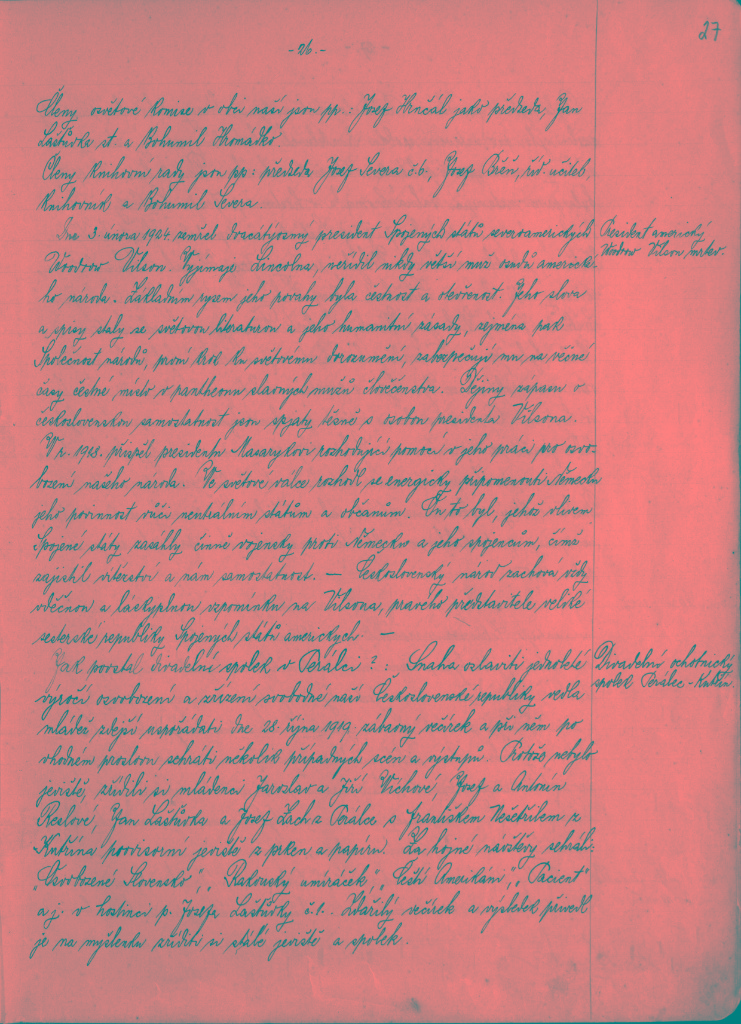 27
-26.-
Členy osvětové komise v obci naší jsou pp.: Josef Hrnčál jako předseda, Jan
Laštůvka st. a Bohumil Hromádko.
Členy knihovní rady jsou pp: předseda Josef Severa č.6., Josef Břeň, říd. učitel,
knihovník a Bohumil Severa.
Dne 3. února 1924 zemřel dvacátýosmý president Spojených států severoamerických
Woodrow Vilson. Vyjímaje Lincolna, neřídil nikdy větší muž osudů americké-
ho národa. Základním rysem jeho povahy byla čestnost a otevřenost. Jeho slova
a spisy staly se světovou literaturou a jeho humanitní zásady, zejmena pak
Společnost národů, první krok ku světovému dorozumění, zabezpečují mu na věčné
časy čestné místo v pantheonu slavných mužů člověčenstva. Dějiny zápasu o
československou samostatnost jsou spjaty těsně s osobou presidenta Vilsona.
V r. 1918. přispěl presidentu Masarykovi rozhodující pomocí v jeho práci pro osvo-
bození našeho národa. Ve světové válce rozhodl se energicky připomenouti Německu
jeho povinnost vůči neutrálním státům a občanům. On to byl, jehož vlivem
Spojené státy zasáhly činně vojensky proti Německu a jeho spojencům, čímž
zajistil vítězství a nám samostatnost. — Československý národ zachová vždy
vděčnou a láskyplnou vzpomínku na Vilsona, pravého představitele veliké
sesterské republiky Spojených států amerických. —
President americký
Woodrow Vilson mrtev.
Jak povstal divadelní spolek v Perálci?: Snaha oslaviti jednoleté
výročí osvobození a zřízení svobodné naší Československé republiky vedla
mládež zdejší uspořádati dne 28. října 1919. zábavný večírek a při něm po
vhodném proslovu sehráti několik případných scen a výstupů. Protože nebylo
jeviště, zřídili si mládenci Jaroslav a Jiří Wichové, Josef a Antonín
Reslové, Jan Laštůvka a Josef Zach z Perálce s Františkem Nešetřilem z
Kutřína provisorní jeviště z prken a papíru. Za hojné návštěvy sehráli:
„Osvobozené Slovensko", „Rakouský umíráček", „Čeští Amerikáni", „Pacient"
a j. v hostinci p. Josefa Laštůvky č.1.. Zdařilý večírek a výsledek přivedl
je na myšlenku zříditi si stálé jeviště a spolek.
Divadelní ochotnický
spolek Perálec-Kutřín.